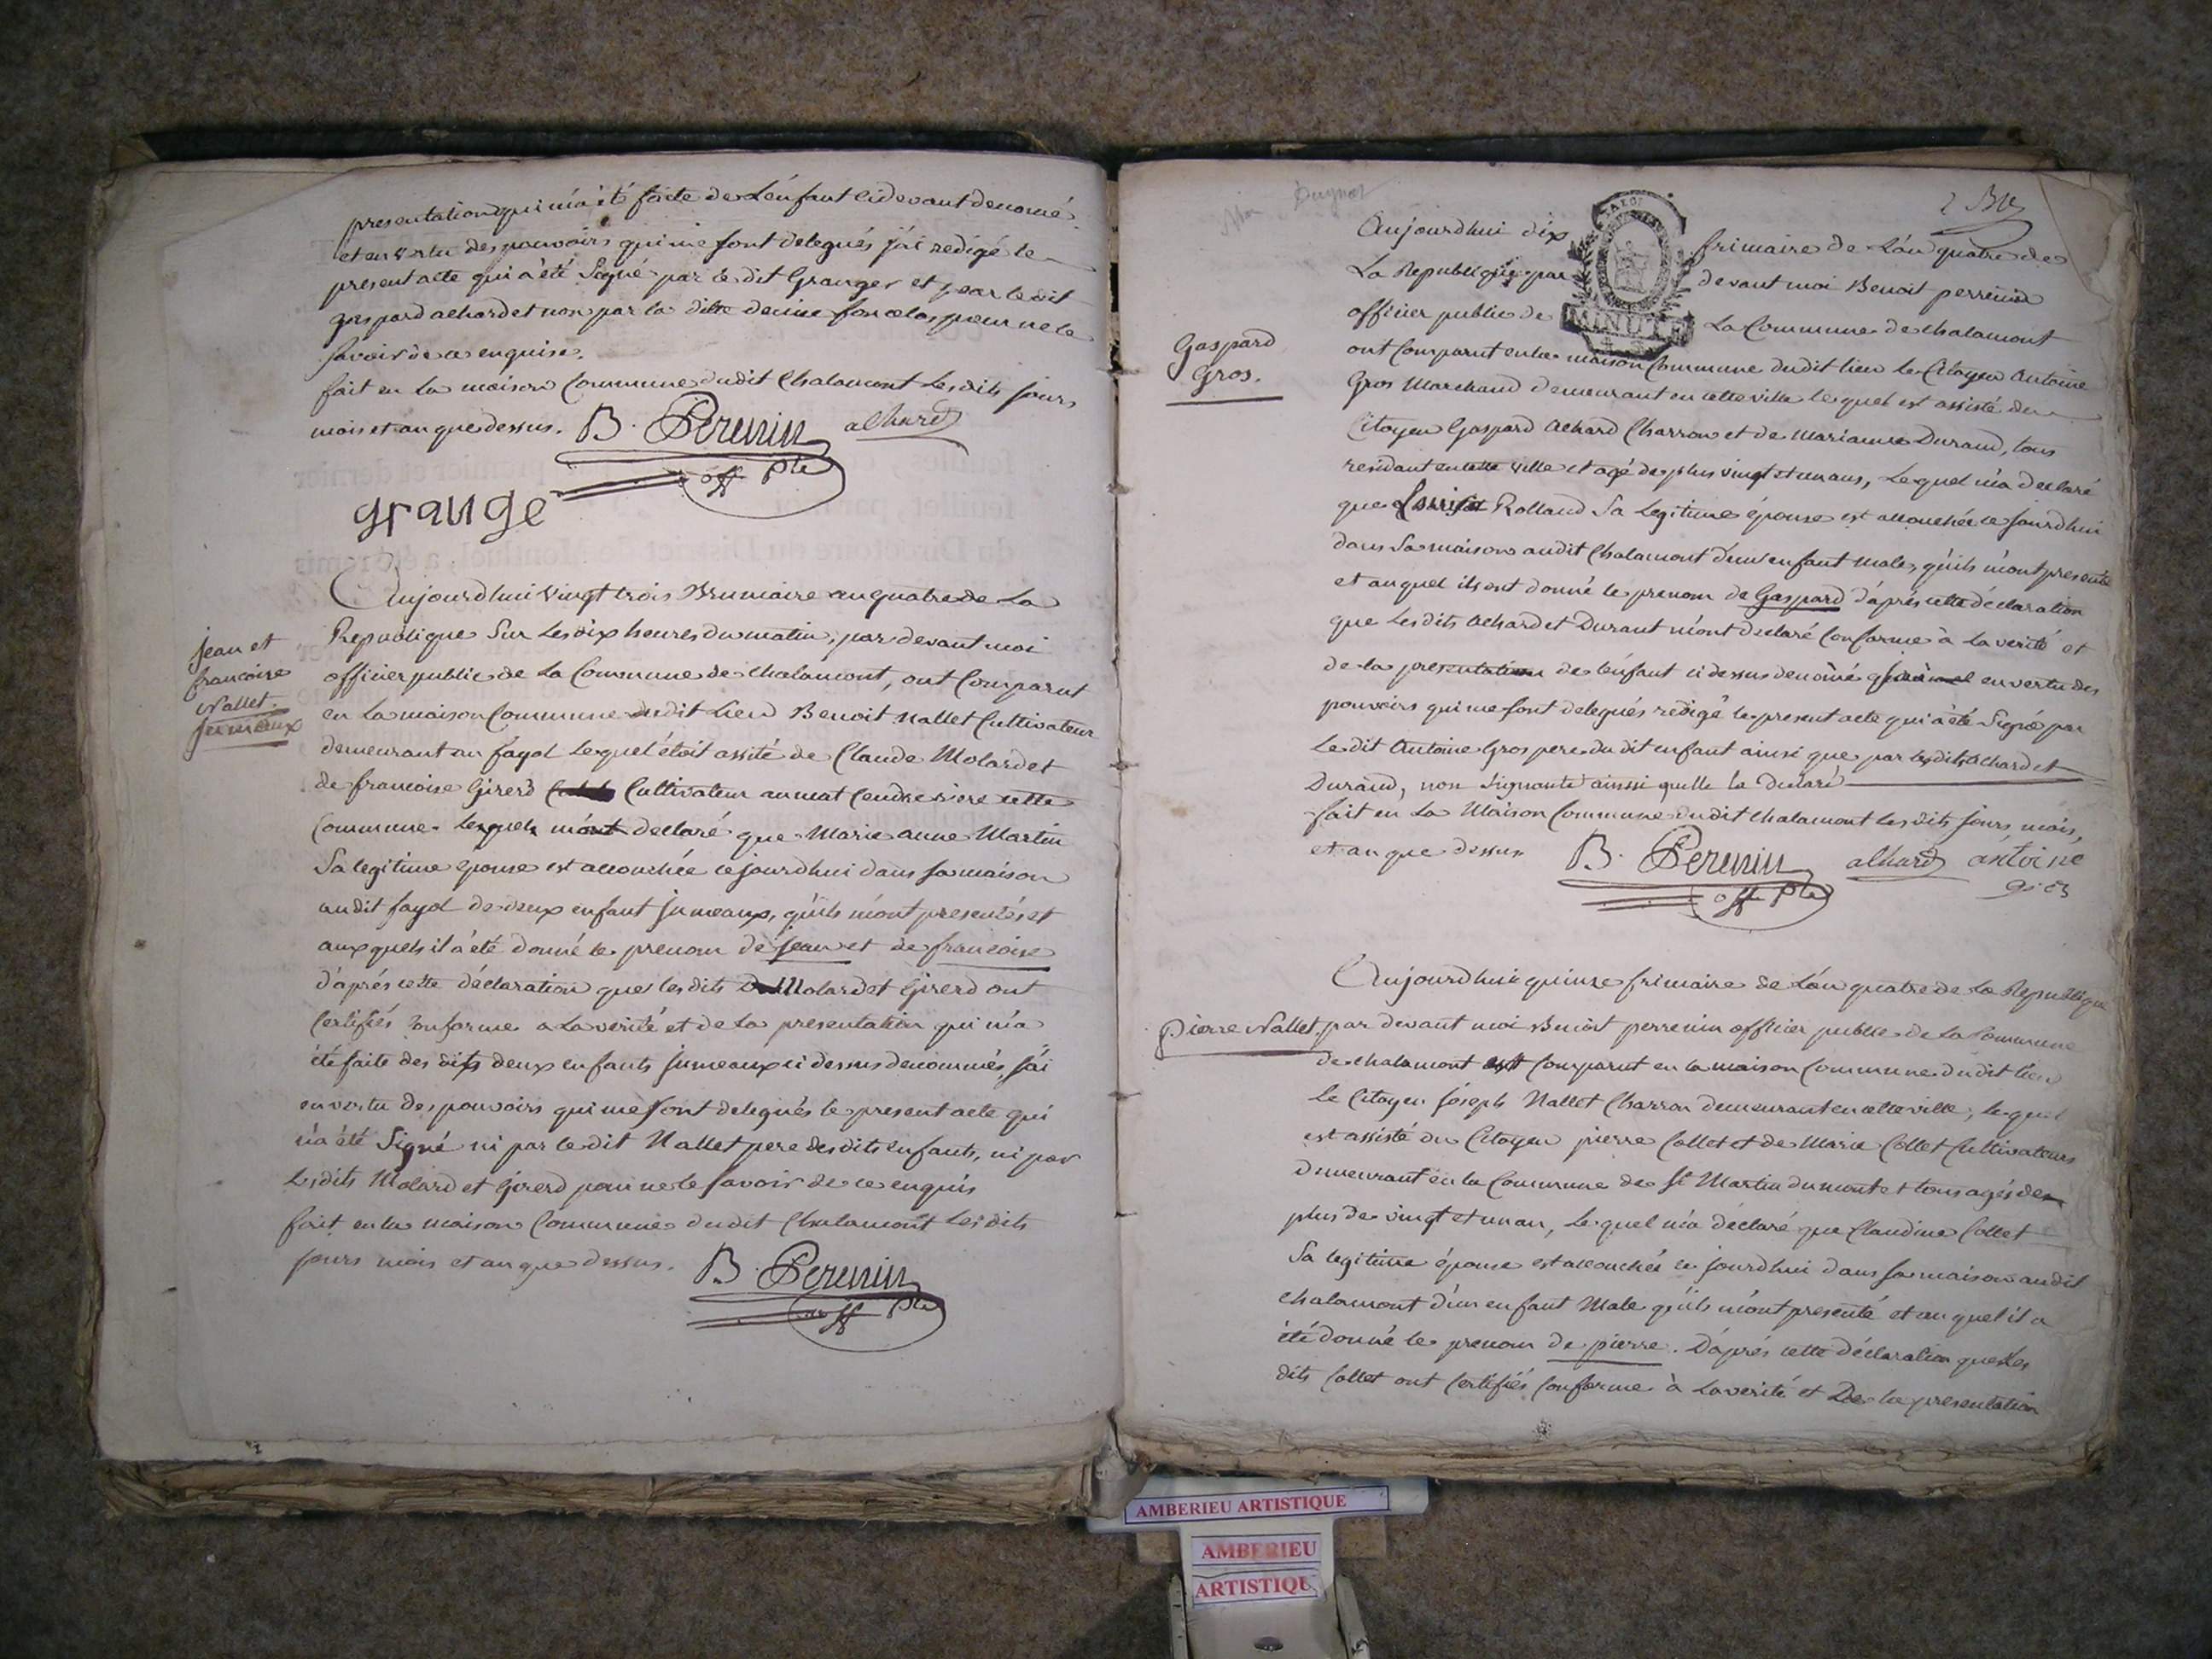 presentation qui m'a été faite de L'enfant cidevant denomé
et en vertu des pouvoirs qui me sont delegués j'ai redigé le
present acte qui à été Signé par le dit Granger et par le dit
gaspard achard et non par la ditte denise pour ne le
savoir de ce enquise.
fait en la maison Commune dudit Chalamont les dits jours
mois et an que dessus. B. Perenin achard
off pte
grange
Aujourdhui vingt trois Brumaire an quatre de La
Republique Sur les dix heures du matin, par devant moi
officier public de La Commune de chalamont, ont Comparut
en La maison Commune dudit Lieu Benoit Nallet Cultivateur
demeurant au fayol Lequel étoit assité de Claude Molard et
de francoise Girerd Cultivateur au cette
Commune. Lesquels m'ont declaré que Marie anne Martin
Sa legitime epouse est accouchée cejourdhui dans sa maison
audit fayol de deux enfant jumeaux, qu'ils m'ont presentés et
auxquels il a été donné le prenom de jean et de francoise
d'après cette déclaration que les dits Molard et Girerd ont
Certifiés Conforme a La verité et de La presentation qui m'a
été faite des dits deux enfants jumeaux ci dessus denommés, j'ai
en vertu des pouvoirs qui me sont delegués le present acte qui
n'a été Signé ni par le dit Nallet pere des dits enfants, ni par
Les dits Molard et Girerd pour ne le savoir de ce enquis
fait en la maison Commune dudit Chalamont Les dits
jours mois et an que dessus. B. Perenin
off pte
jean et
francoise
Nallet.
jumeaux
Aujourdhui dix frimaire de L'an quatre de
La Republique par devant moi Benoit perrenin
officier public de La Commune de chalamont
MINUTE
ont Comparut en la maison Commune dudit lieu le Citoyen Antoine
Gros Marchand demeurant en cette ville lequel est assisté du
Citoyen Gaspard Achard Charron et de Marianne Durand, tous
residant en cette ville et agé de plus vingt et un ans, Lequel m'a declaré
que Rolland Sa Legitime épouse est accouchée ce jourdhui
dans Sa maison audit Chalamont d'un enfant male, qu'ils m'ont presenté
et auquel ils ont donné le prenom de Gaspard d'après cette déclaration
que Les dits Achard et Durant m'ont declaré Conforme à La verité et
de la presentation de l'enfant ci dessus denomé en vertu des
pouvoirs qui me sont delegués redigé le present acte qui à été Signé par
Le dit Antoine Gros pere du dit enfant ainsi que par Achard et
Durand, non Signante ainssi quelle la Declaré
fait en La Maison Commune dudit Chalamont les dits jours, mois,
et an que dessus B. Perenin achard antoine
gros
off pte
Gaspard
Gros.
Aujourdhui quinze frimaire de L'an quatre de La Republique
par devant moi Benoit perrenin officier public de La Commune
de chalamont est Comparut en la maison Commune dudit lieu
Le Citoyen joseph Nallet Charron demeurant en cette ville, lequel
est assisté du Citoyen pierre Collet et de Marie Collet Cultivateurs
Demeurant en la Commune de St Martin du mont et tous agés de
plus de vingt et un an, Lequel m'a déclaré que Claudine Collet
Sa legitime épouse est accouchée ce jourdhui dans sa maison audit
chalamont d'un enfant Male qu'ils m'ont presenté et auquel il a
été donné le prenom de pierre. D'après cette déclaration que Les
dits Collet ont Certifiés Conforme à La verité et De la presentation
Pierre Nallet.
AMBERIEU ARTISTIQUE
AMBERIEU
ARTISTIQUE